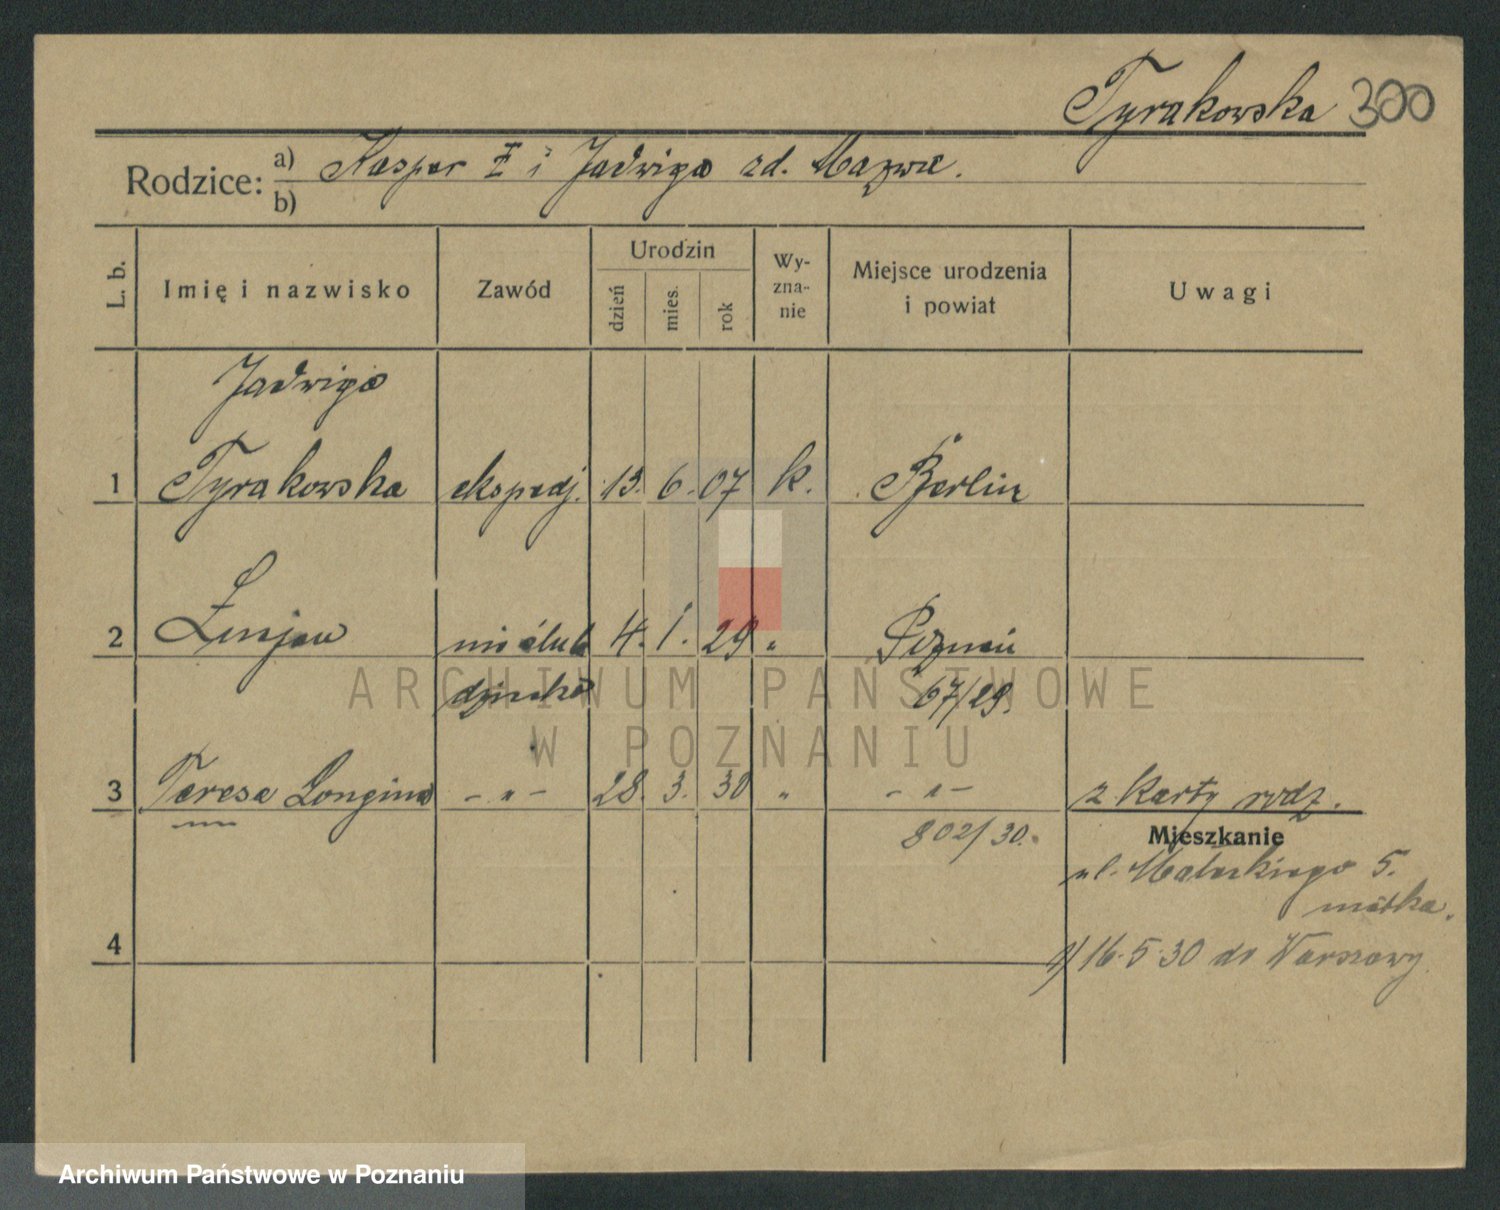 Tyrakowska 300
Rodzice: a) Kasper Ł i Jadwiga zd.
b)
L. b. Imię i nazwisko Zawód Urodzin dzień mies. rok Wy-zna-nie Miejsce urodzenia i powiat Uwagi
Jadwiga
1 Tyrakowska ekspedj. 13. 6. 07 k. Berlin
2 nieślub 4. 1. 29 " Poznań
dziecko 67/29.
3 Teresa Longina - " - 28. 3. 30 " - " - z karty rodz.
802/30. Mieszkanie
ul. 5.
matka.
4
1) 16.5.30 do Warszawy
ARCHIWUM PAŃSTWOWE
W POZNANIU
Archiwum Państwowe w Poznaniu